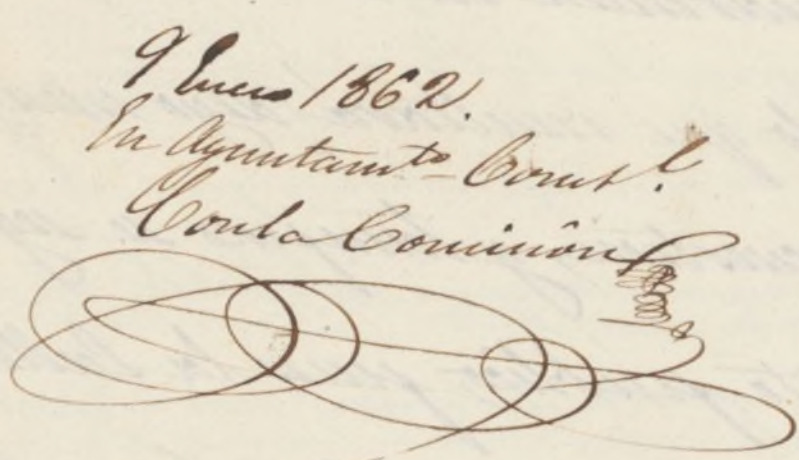 9 Enero 1862.
En Ayuntam.to Const.l
Con la Comision